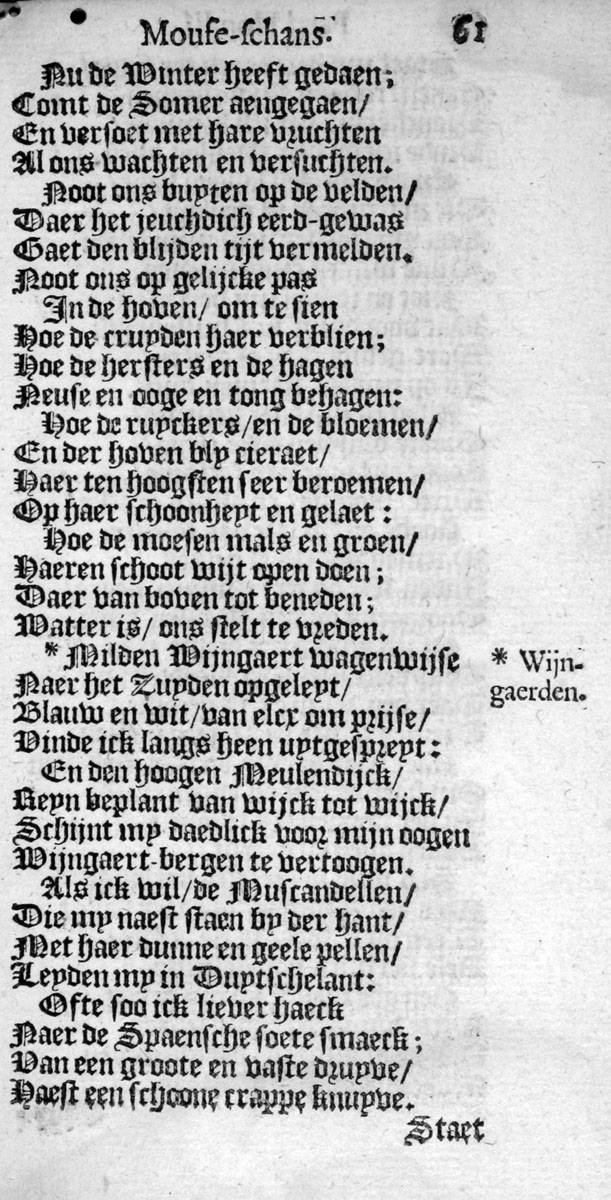 Moufe-fchans. 61
Nu de Winter heeft gedaen;
Comt de Somer aengegaen/
En versoet met hare vruchten
Al ons wachten en versuchten.
Noot ons buyten op de velden/
Daer het jeuchdich eerd-gewas
Gaet den blijden tijt vermelden.
Noot ons op gelijcke pas
In de hoven/ om te sien
Hoe de cruyden haer verblien;
Hoe de hersters en de hagen
Neuse en ooge en tong behagen:
Hoe de ruyckers/en de bloemen/
En der hoven bly cieraet/
Haer ten hoogsten seer beroemen/
Op haer schoonheyt en gelaet:
Hoe de moesen mals en groen/
Haeren schoot wijt open doen;
Daer van boven tot beneden;
Watter is/ ons stelt te vreden.
* Milden Wijngaert wagenwijse
* Wijn-
gaerden.
Naer het Zuyden opgeleyt/
Blauw en wit/van elcx om prijse/
Vinde ick langs heen uytgespreyt:
En den hoogen Meulendijck/
Reyn beplant van wijck tot wijck/
Schijnt my daedlick voor mijn oogen
Wijngaert-bergen te vertoogen.
Als ick wil/de Muscandellen/
Die my naest staen by der hant/
Met haer dunne en geele pellen/
Leyden my in Duytschelant:
Ofte soo ick liever haeck
Naer de Spaensche soete smaeck;
Van een groote en vaste druyve/
Haest een schoone trappe knuyve.
Staet